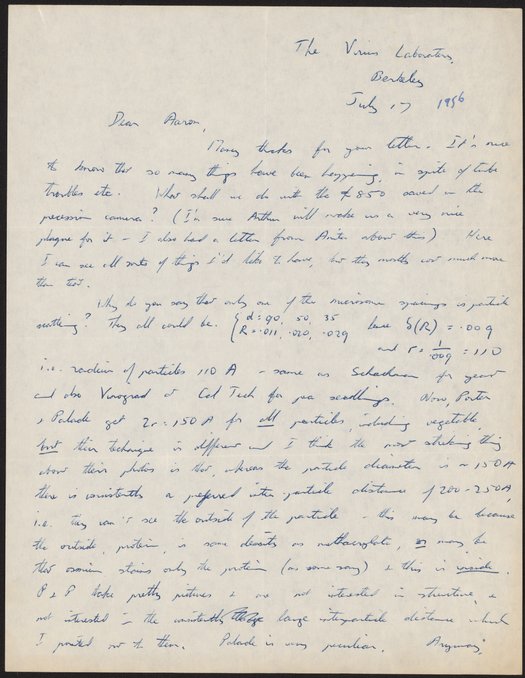 The Virus Laboratory,
Berkeley
July 17 1956
Dear Aaron,
Many thanks for your letter. It's nice
to know that so many things have been happening, in spite of tube
troubles etc. What shall we do with the £850 saved on the
precession camera? (I'm sure Arthur will make us a very nice
plaque for it - I also had a letter from Anita about this) Here
I can see all sorts of things I'd like to have, but they mostly cost much more
than that.
Why do you say that only one of the microsome spacings is particle
scattering? They all could be. { d: 90, 50, 35 have δ(R) = .009
R = .011, .020, .029 and r = 1/.009 = 110
i.e. radius of particles 110 A - same as Schachman for yeast
and also Vinograd at Cal Tech for pea seedlings. Now, Porter
& Palade get 2r = 150 A for all particles, including vegetable,
but their technique is different and I think the most striking thing
about their photos is that, whereas the particle diameter is ~ 150 A
there is consistently a preferred inter particle distance of 200-250 A,
i.e. they can't see the outside of the particle - this may be because
the outside, protein, is same density as methacrylate, or may be
that osmium stains only the protein (as some say) & this is inside.
P & P take pretty pictures & are not interested in structure, &
not interested in the consistently large interparticle distance which
I pointed out to them. Palade is very peculiar. Anyway,